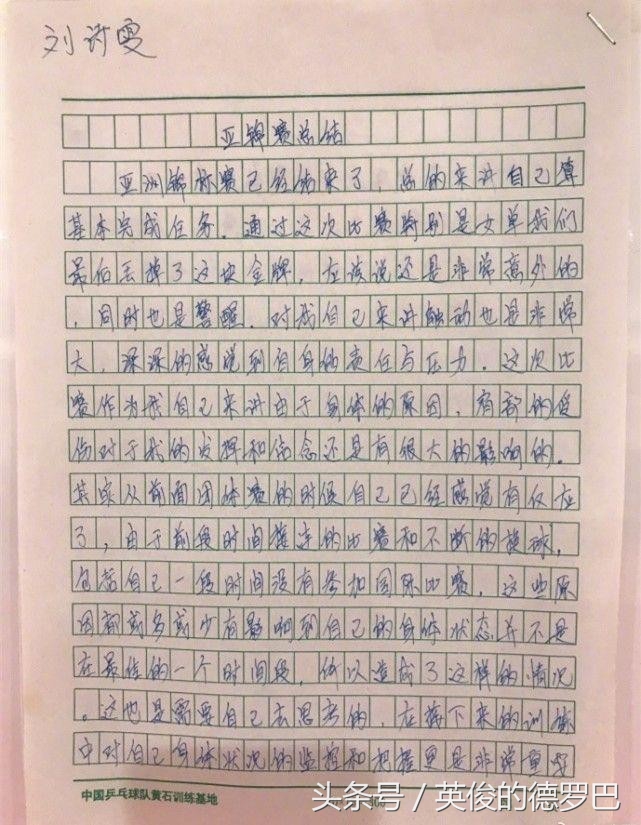 刘诗雯
亚锦赛总结
亚洲锦标赛已经结束了，总的来讲自己算
基本完成任务．通过这次比赛特别是女单我们
最后丢掉了这块金牌，应该说还是非常意外的
，同时也是警醒．对我自己来讲触动也是非常
大，深深的感觉到自身的责任与压力．这次比
赛作为我自己来讲由于身体的原因，肩部的受
伤对于我的发挥和信念还是有很大的影响的．
其实从前面团体赛的时候自己已经感觉有反应
了，由于前段时间接连的比赛和不断的换球，
包括自己一段时间没有参加国际比赛，这些原
因都或多或少有影响到自己的身体状态并不是
在最佳的一个时间段，所以造成了这样的情况
．这也是需要自己去思考的，在接下来的训练
中对自己身体状况的监控和把握更是非常重要
中国乒乓球队黄石训练基地
头条号／英俊的德罗巴